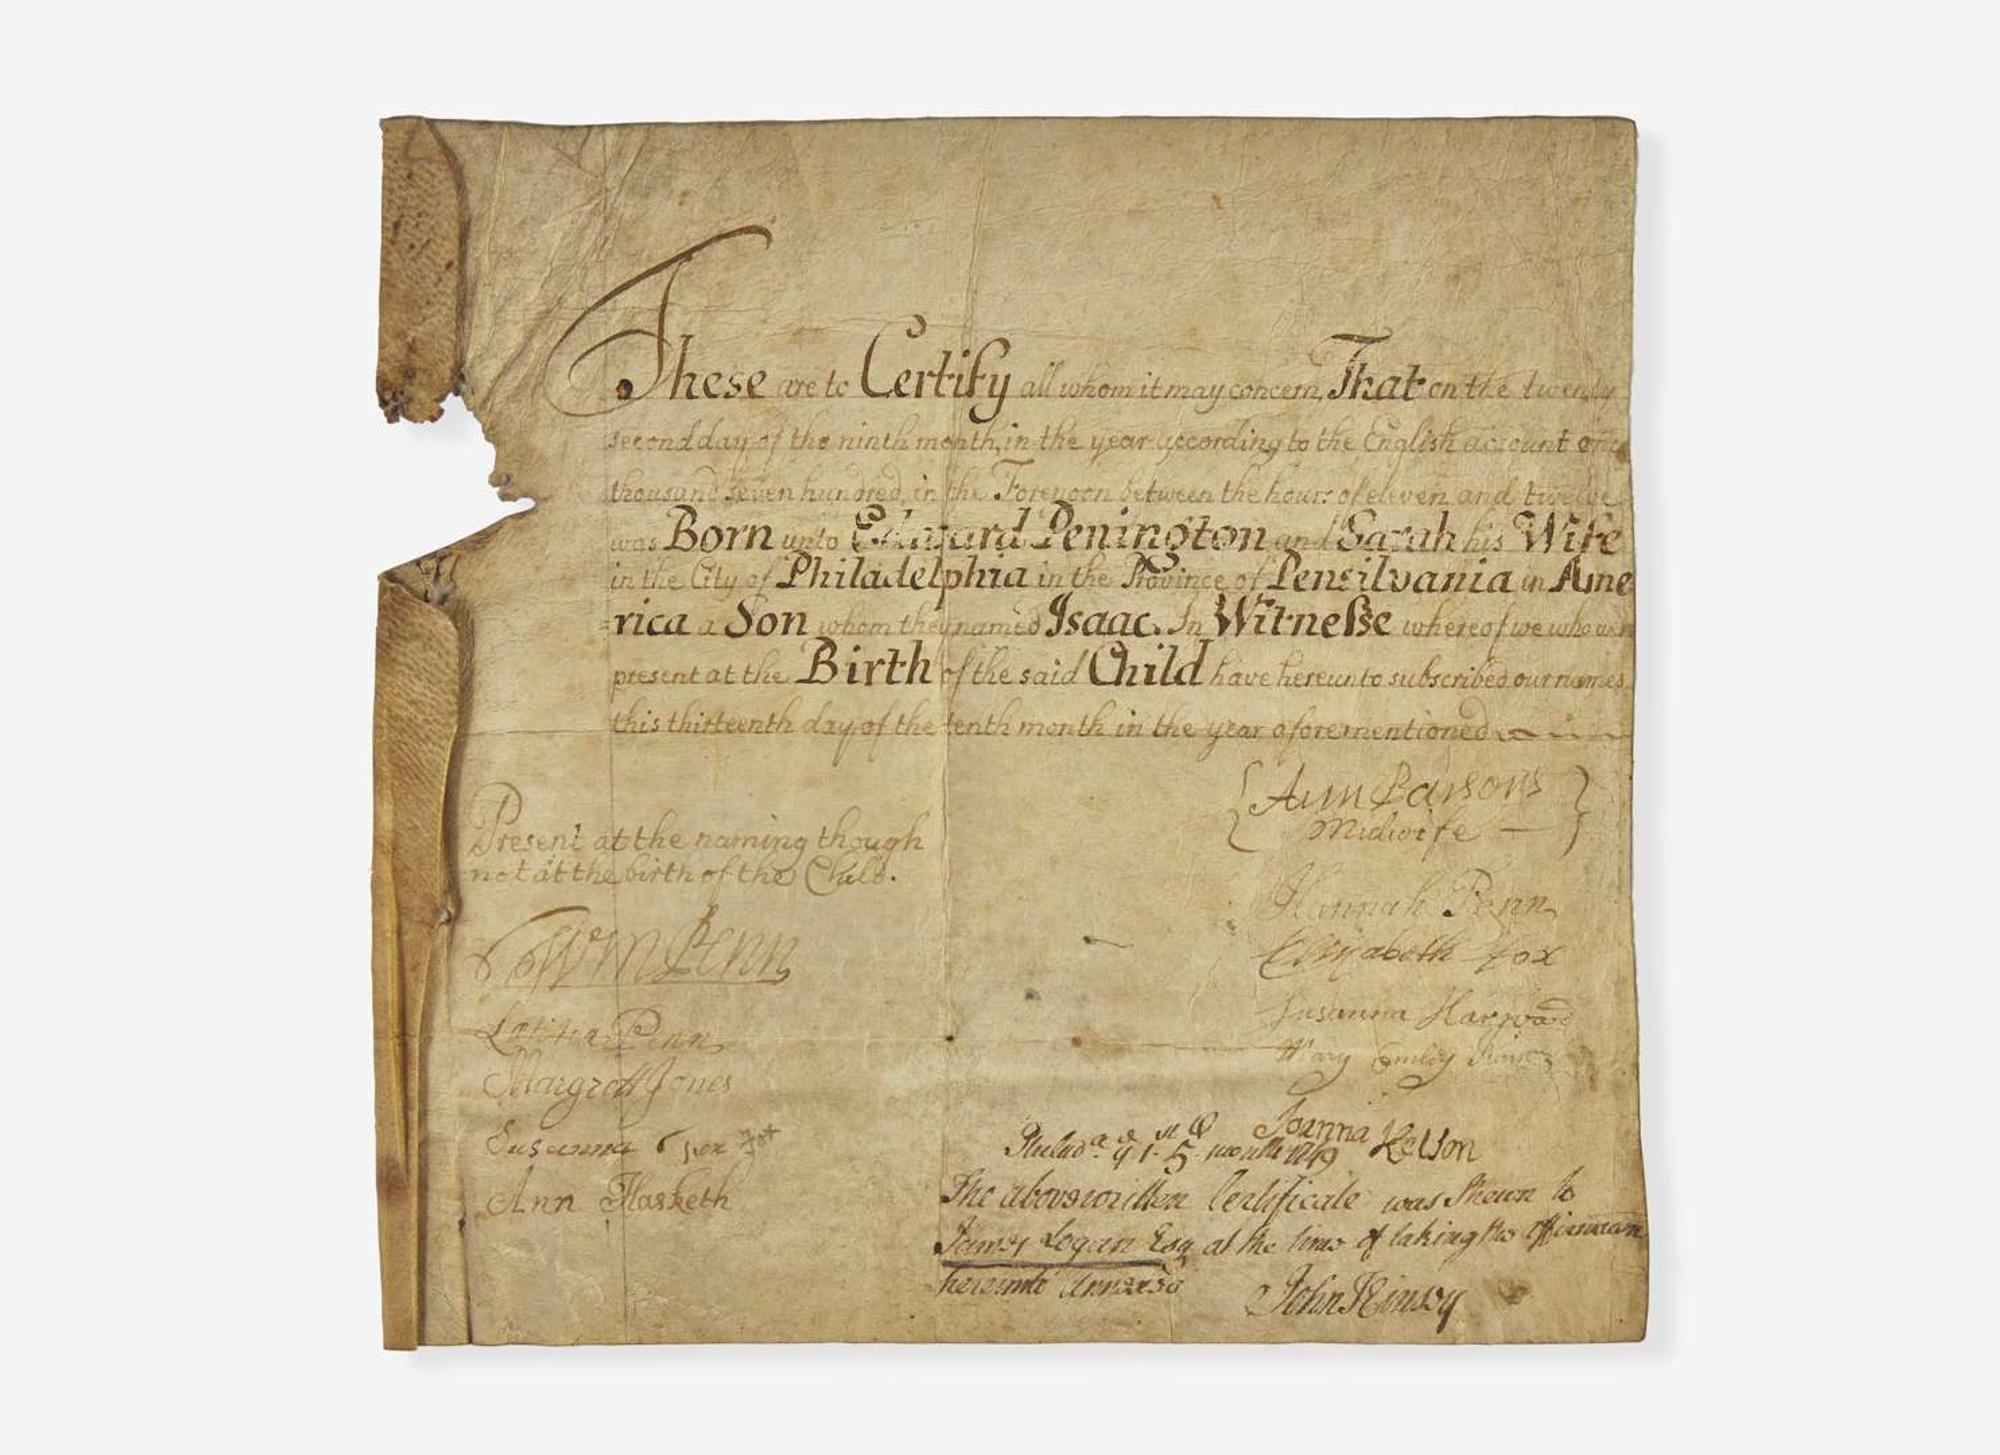 These are to Certify all whom it may concern, That on the twenty
second day of the ninth month, in the year according to the English account one
thousand seven hundred, in the Forenoon between the hours of eleven and twelve
was Born unto Edward Penington and Sarah his Wife
in the City of Philadelphia in the Province of Pensilvania in Ame
=rica a Son whom they named Isaac. In Witnesse whereof we who were
present at the Birth of the said Child have hereunto subscribed our names
this thirteenth day of the tenth month in the year aforementioned
Ann Parsons
Midwife
Present at the naming though
not at the birth of the Child.
Hannah Penn
Elizabeth Fox
Wm Penn
Susanna Harwood
Mary
Lætitia Penn
Margrett Jones
Joanna Kelson
Susanna
Philada. ye 1st 5 month 1749
Ann Hasketh
The abovewritten Certificate was Shewn to
James Logan Esq at the time of taking the Affirmation
hereunto Annexed
John Kinsey